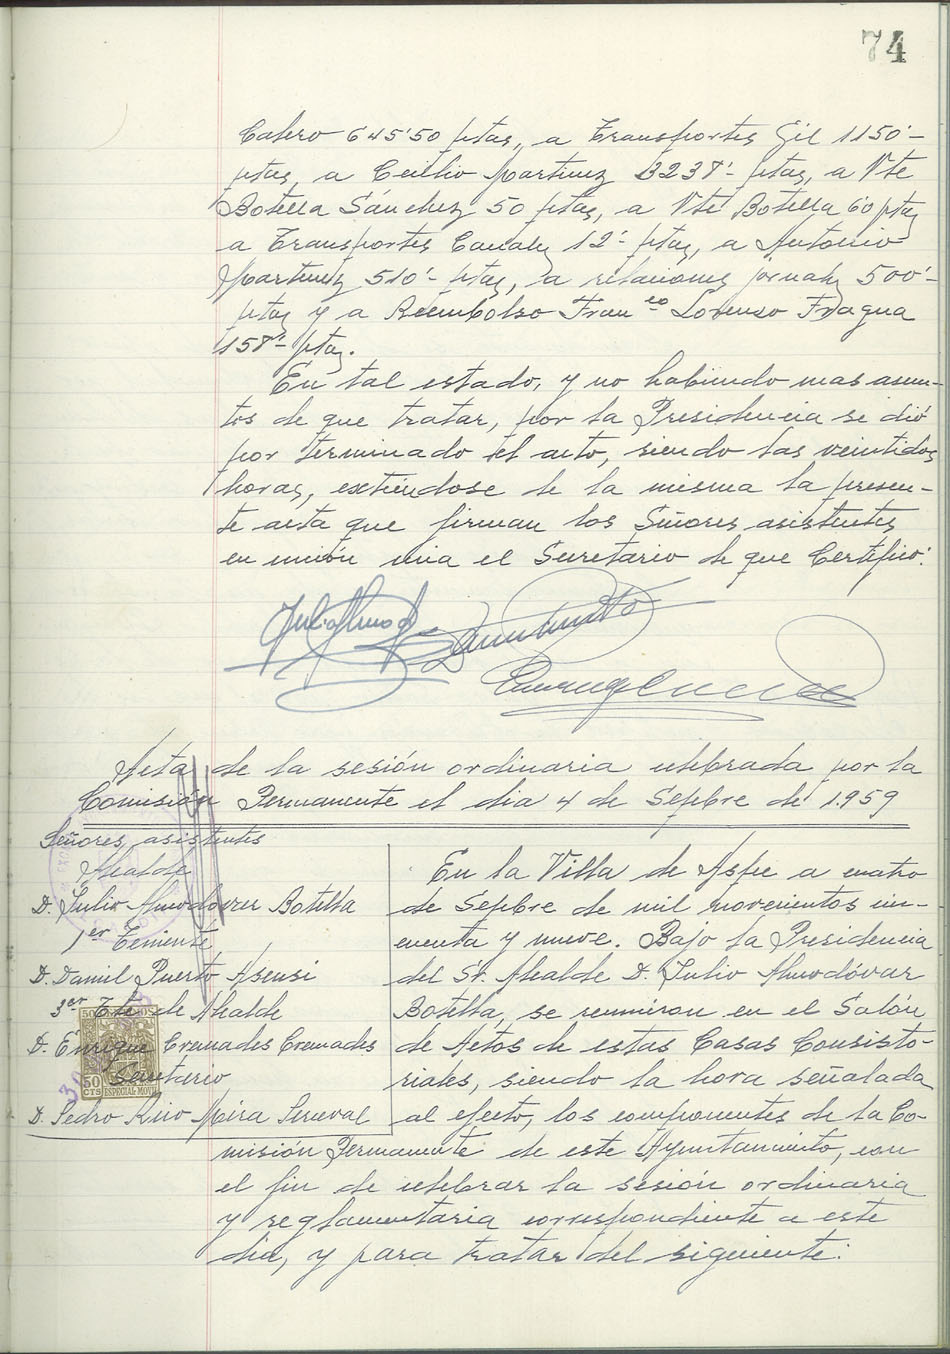 74
Calero 645'50 ptas, a Transportes Gil 1150'-
ptas, a Cecilio Martinez 3238'- ptas, a Vte
Botella Sánchez 50 ptas, a Vte Botella 60 ptas
a Transportes Canals 12'- ptas, a Antonio
Martinez 510'- ptas, a relaciones jornales 500'-
ptas y a Reembolso Fran.co Lorenzo Fragua
158'- ptas.
En tal estado, y no habiendo mas asun-
tos de que tratar, por la Presidencia se dió
por terminado el acto, siendo las veintidos
horas, extiendose de la misma la presen-
te acta que firman los Señores asistentes
en unión mia el Secretario de que Certifico:
Acta de la sesión ordinaria celebrada por la
Comisión Permanente el dia 4 de Sepbre de 1.959
Señores asistentes
Alcalde
D. Julio Almodóvar Botella
1er Teniente
D. Daniel Puerto Asensi
3er Tte de Alcalde
D. Enrique Cremades Cremades
Secretario
D. Pedro Mira
50 CTS ESPECIAL MOVIL
En la Villa de Aspe a cuatro
de Sepbre de mil novecientos cin-
cuenta y nueve. Bajo la Presidencia
del Sr. Alcalde D. Julio Almodóvar
Botella, se reunieron en el Salón
de Actos de estas Casas Consisto-
riales, siendo la hora señalada
al efecto, los componentes de la Co-
misión Permanente de este Ayuntamiento, con
el fin de celebrar la sesión ordinaria
y reglamentaria correspondiente a este
dia, y para tratar del siguiente: